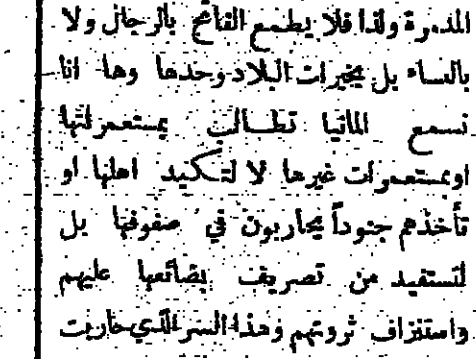 المدمرة ولذا فلا يطمع الفاتح بالرجال ولا
بالنساء بل بخيرات البلاد وحدها وها انا
نسمع المانيا تطالب بمستعمراتها
اوبمستعمرات غيرها لا لتكيد اهلها او
تأخذهم جنوداً يحاربون في صفوفها بل
لتستفيد من تصريف بضائعها عليهم
واستنزاف ثروتهم وهذا السر الذي حاربت